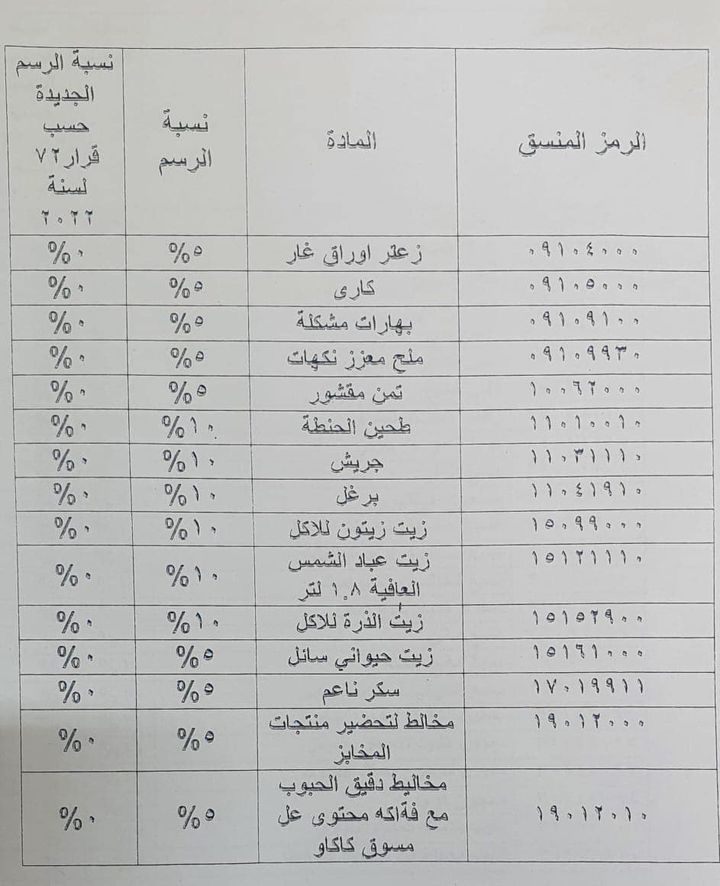 الرمز المنسق المادة نسبة الرسم نسبة الرسم الجديدة حسب قرار ٧٢ لسنة ٢٠٢٢
٠٩١٠٤٠٠٠ زعتر اوراق غار ٥% ٠%
٠٩١٠٥٠٠٠ كارى ٥% ٠%
٠٩١٠٩١٠٠ بهارات مشكلة ٥% ٠%
٠٩١٠٩٩٣٠ ملح معزز نكهات ٥% ٠%
١٠٠٦٢٠٠٠ تمن مقشور ٥% ٠%
١١٠١٠٠١٠ طحين الحنطة ١٠% ٠%
١١٠٣١١١٠ جريش ١٠% ٠%
١١٠٤١٩١٠ برغل ١٠% ٠%
١٥٠٩٩٠٠٠ زيت زيتون للاكل ١٠% ٠%
١٥١٢١١١٠ زيت عباد الشمس العافية ١,٨ لتر ١٠% ٠%
١٥١٥٢٩٠٠ زيت الذرة للاكل ١٠% ٠%
١٥١٦١٠٠٠ زيت حيواني سائل ٥% ٠%
١٧٠١٩٩١١ سكر ناعم ٥% ٠%
١٩٠١٢٠٠٠ مخالط لتحضير منتجات المخابز ٥% ٠%
١٩٠١٢٠١٠ مخاليط دقيق الحبوب مع فةاكه محتوى عل مسوق كاكاو ٥% ٠%